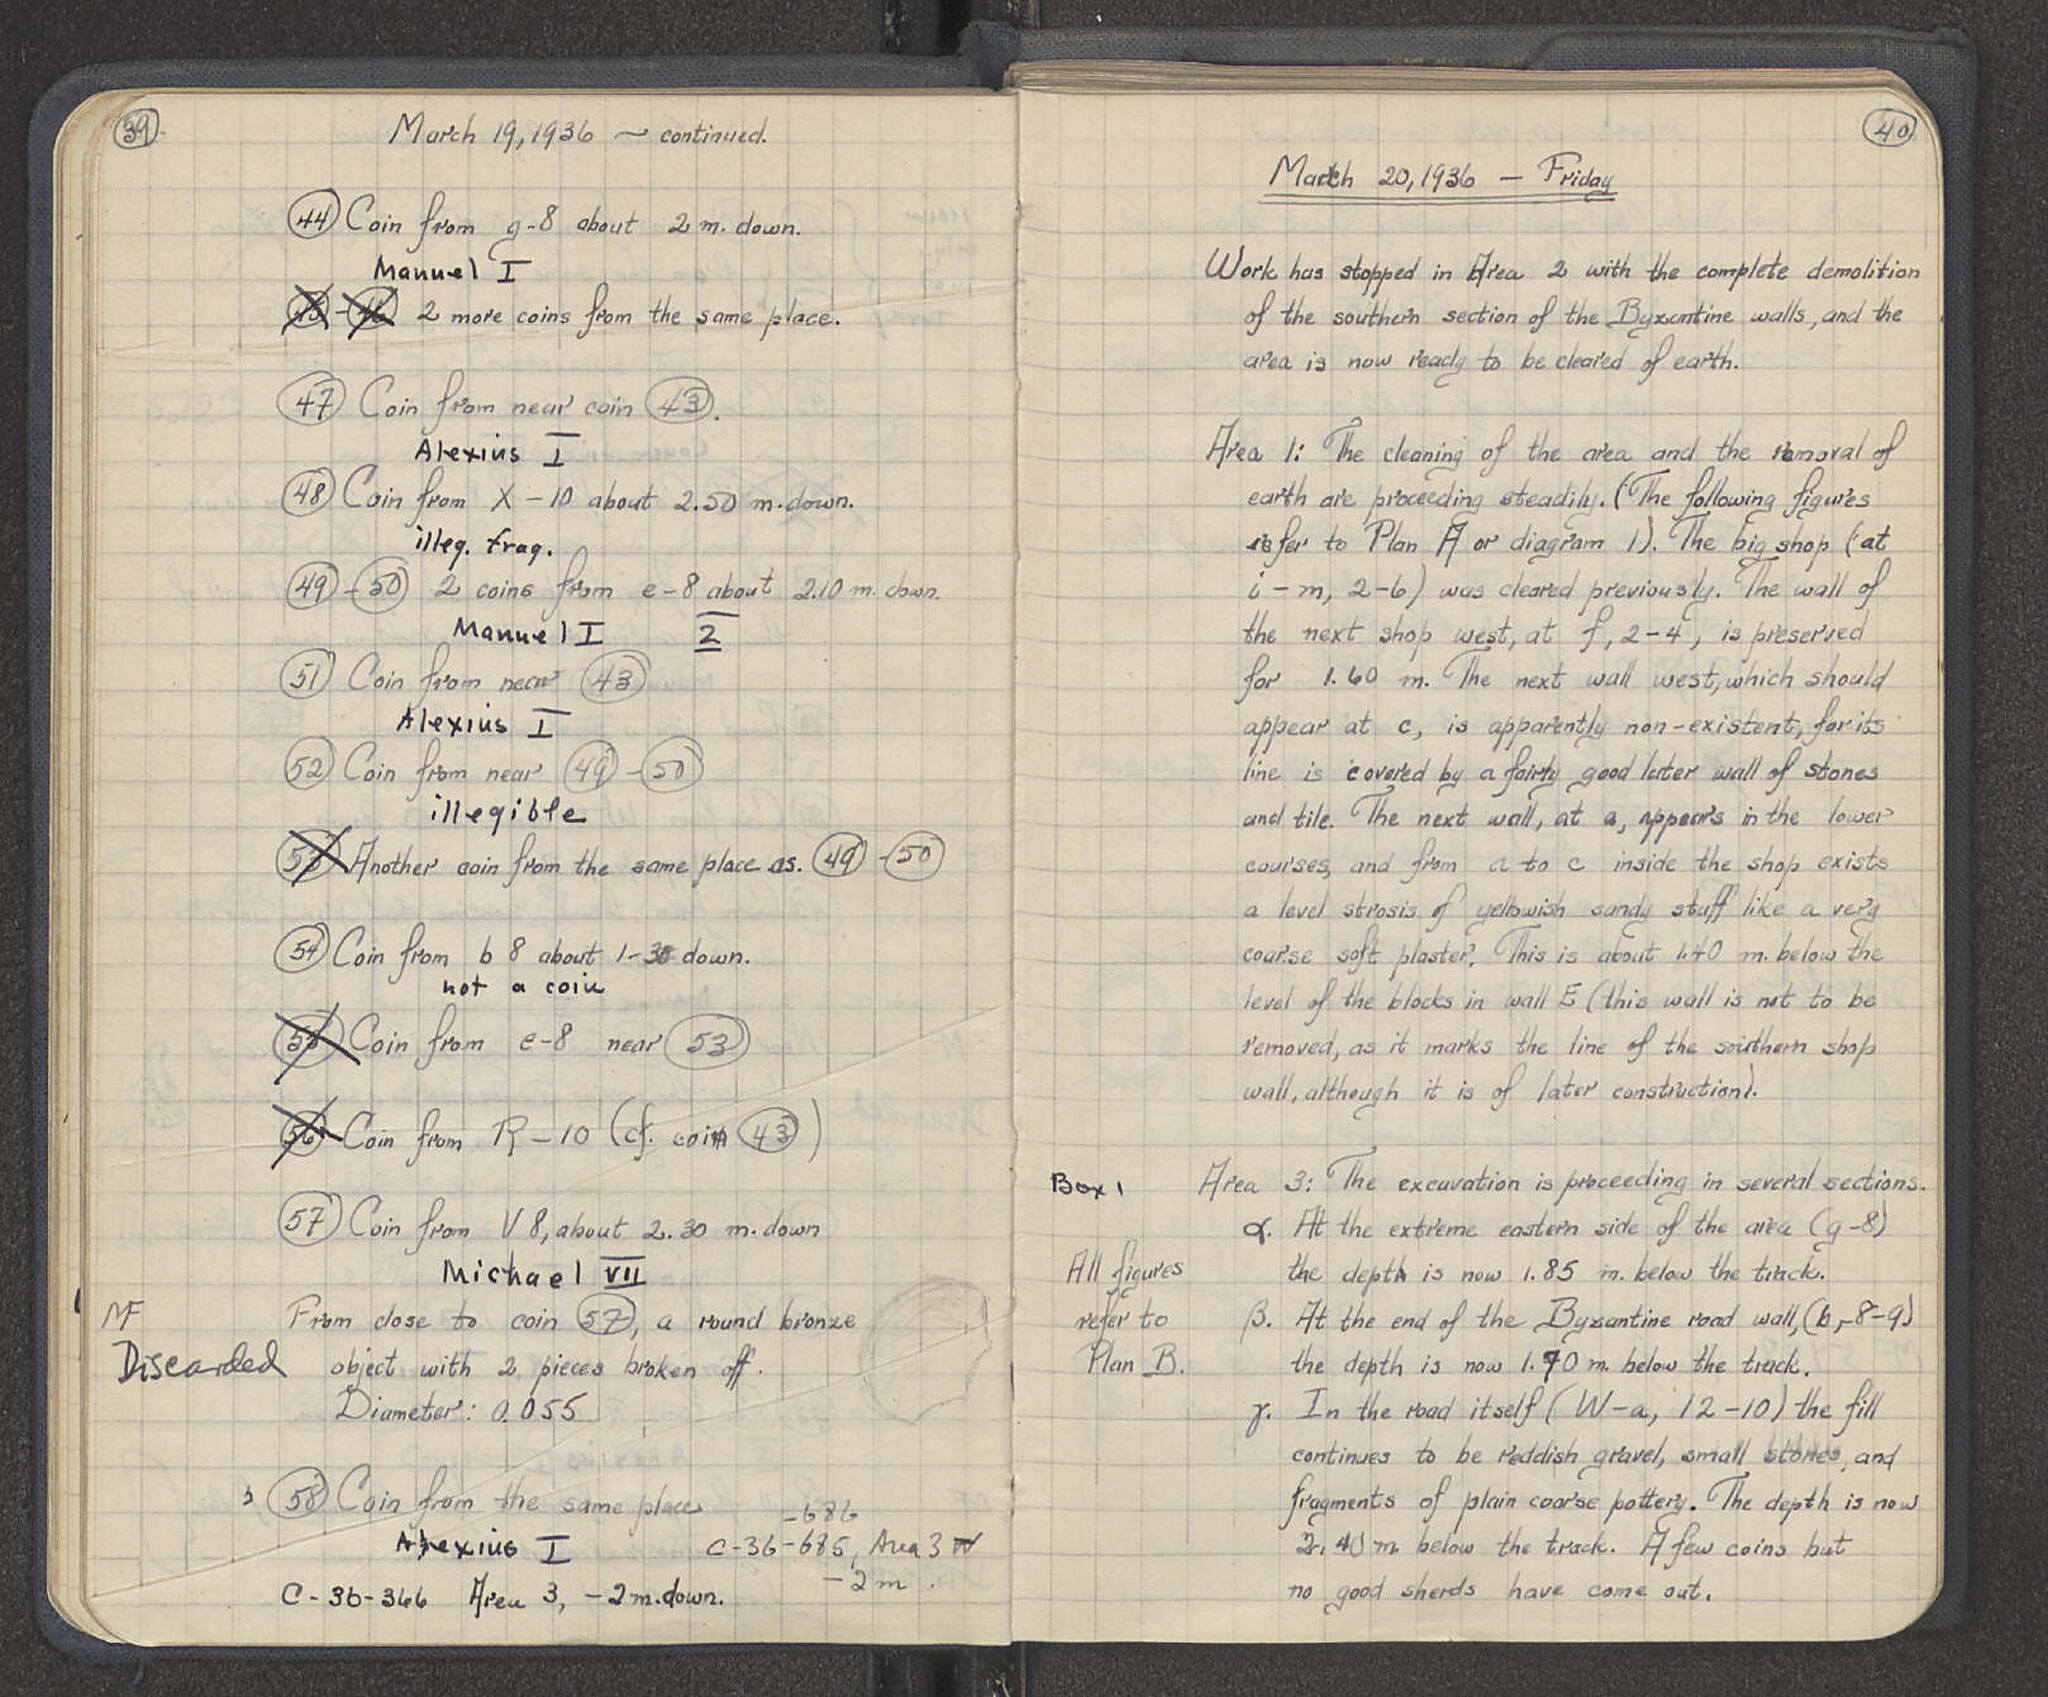 39
March 19, 1936 — continued.
44 Coin from g-8 about 2 m. down.
Manuel I
45 - 46 2 more coins from the same place.
47 Coin from near coin 43.
Alexius I
48 Coin from X-10 about 2.50 m. down.
illeg. frag.
49 - 50 2 coins from e-8 about 2.10 m. down.
Manuel I 2
51 Coin from near 43
Alexius I
52 Coin from near 49 - 50
illegible
53 Another coin from the same place as. 49 - 50
54 Coin from b 8 about 1-30 down.
not a coin
55 Coin from e-8 near 53
56 Coin from R-10 (cf. coin 43)
57 Coin from V 8, about 2.30 m. down
Michael VII
MF From close to coin 57, a round bronze
Discarded object with 2 pieces broken off.
Diameter: 0.055
58 Coin from the same place
-686
Alexius I C-36-685, Area 3
-2 m.
C-36-366 Area 3, -2 m. down.
40
March 20, 1936 — Friday
Work has stopped in Area 2 with the complete demolition
of the southern section of the Byzantine walls, and the
area is now ready to be cleared of earth.
Area 1: The cleaning of the area and the removal of
earth are proceeding steadily. (The following figures
refer to Plan A or diagram 1). The big shop (at
i-m, 2-6) was cleared previously. The wall of
the next shop west, at f, 2-4, is preserved
for 1.60 m. The next wall west, which should
appear at c, is apparently non-existent, for its
line is covered by a fairly good later wall of stones
and tile. The next wall, at a, appears in the lower
courses, and from a to c inside the shop exists
a level strosis of yellowish sandy stuff like a very
coarse soft plaster. This is about 1.40 m. below the
level of the blocks in wall E (this wall is not to be
removed, as it marks the line of the southern shop
wall, although it is of later construction).
Box 1 Area 3: The excavation is proceeding in several sections.
α. At the extreme eastern side of the area (g-8)
All figures the depth is now 1.85 m. below the track.
refer to β. At the end of the Byzantine road wall, (b,-8-9)
Plan B. the depth is now 1.70 m. below the track.
γ. In the road itself (W-a, 12-10) the fill
continues to be reddish gravel, small stones, and
fragments of plain coarse pottery. The depth is now
2.40 m. below the track. A few coins but
no good sherds have come out.